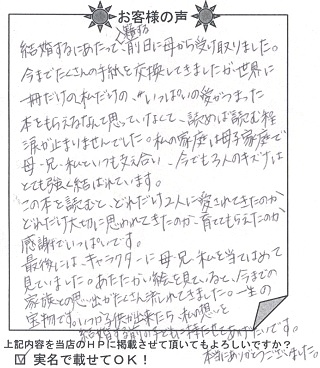 お客様の声
結婚するにあたって、前日に母から受け取りました。
今までたくさんの手紙を交換してきましたが世界に
一冊だけの、私だけの、"いっぱい"の愛がつまった
本をもらえるなんて思っていなくて、読めば読む程
涙が止まいませんでした。私の家庭は母子家庭で
母・兄・私といつも支え合い、今でも3人のキズナは
とても強く結ばれています。
この本を読むと、どれだけ2人に愛されてきたのか、
どれだけ大切に思われてきたのか、育ててもらえたのか、
感謝でいっぱいです。
最後には、キャラクターに母・兄・私を当てはめて
見ていました。あたたかい絵を見ていると、今までの
家族との思い出がたくさん溢れてきました。一生の
宝物です。いつか子供が出来たら、私の想いと
結婚する前の子どもに持たせてあげたいです。
本当にありがとうございました。
上記内容を当店のHPに掲載させて頂いてもよろしいですか？
実名で載せてOK！